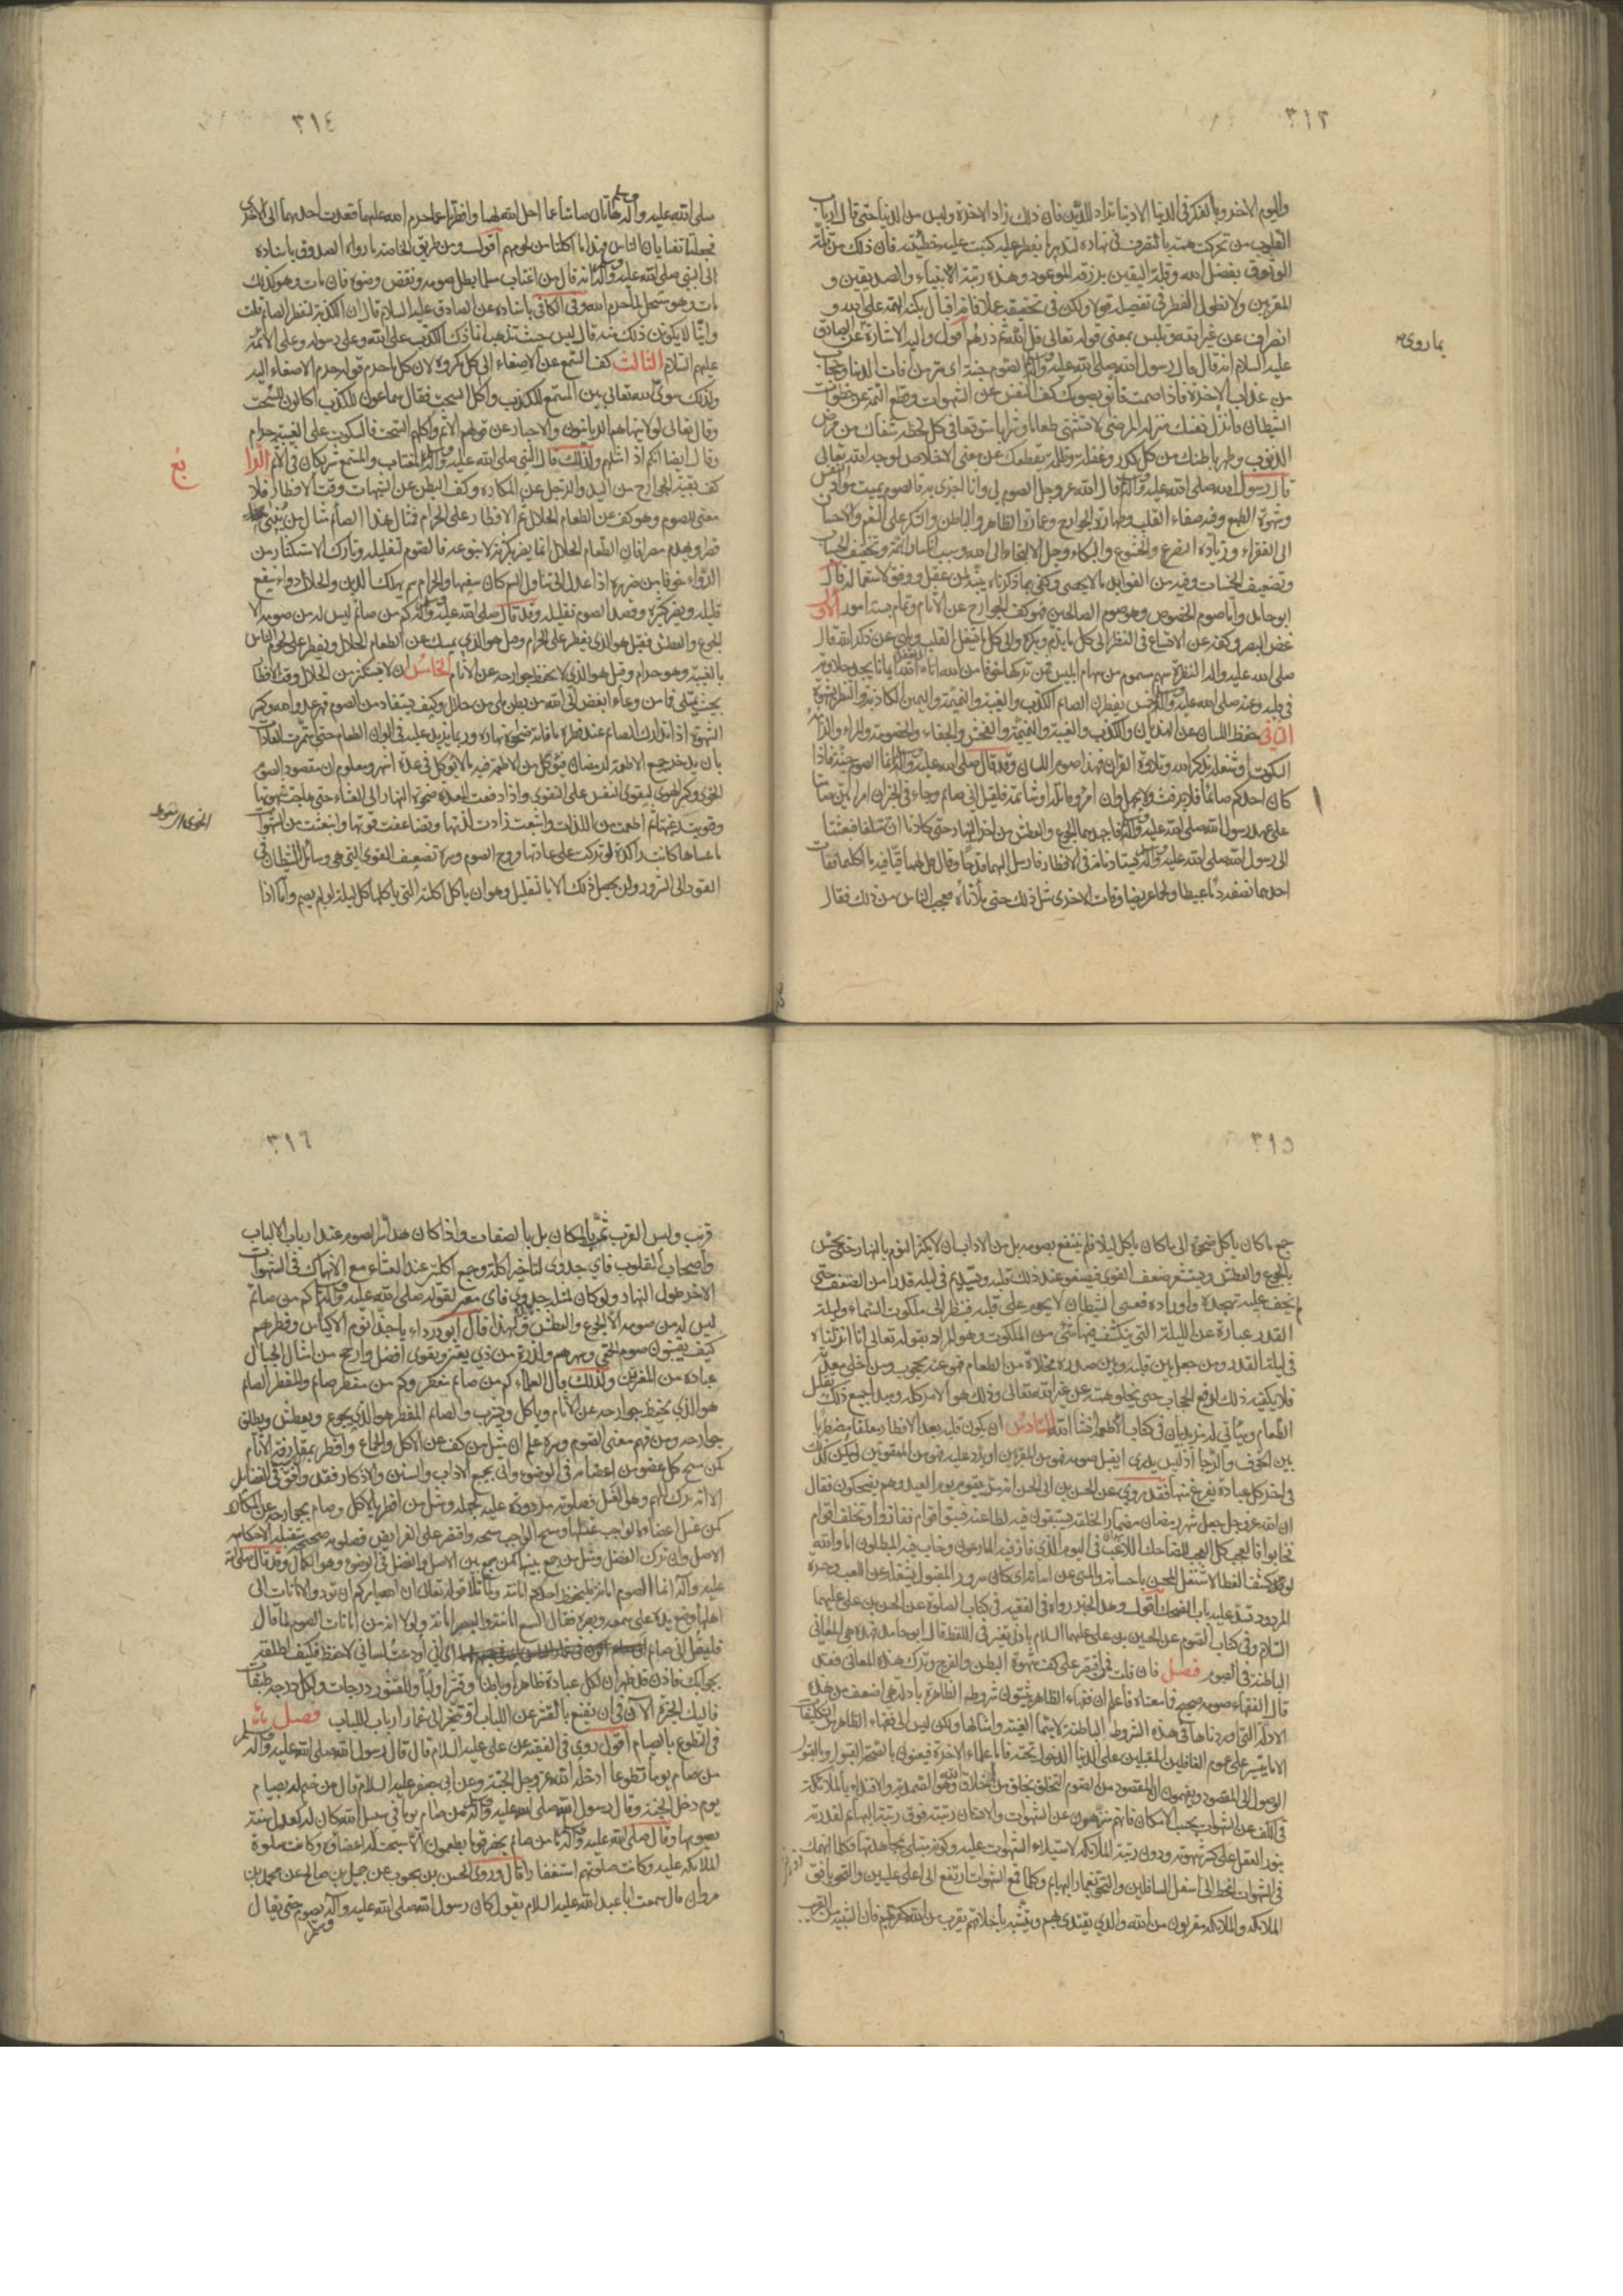 ٣١٣
واليوم الاخر وبالفكر في الدنيا الا دنيا تراد للدين فان ذلك زاد الاخرة وليس من الدنيا حتى قال ارباب
القلوب من تحركت همته بالتصرف في نهاره لتدبير ما يفطر عليه كتبت عليه خطيئة فان ذلك من قلة
الوثوق بفضل الله وقلة اليقين برزقه الموعود وهذه رتبة الانبياء والصديقين و
المقربين ولا نطول النظر في تفصيله قولا ولكن في تحقيقه عملا فانه اقبال بكنه الهمة على الله و
انصراف عن غير الله وتلبس بمعنى قوله تعالى قل الله ثم ذرهم اقول واليه الاشارة عن الصادق
بما روى
عليه السلام انه قال قال رسول الله صلى الله عليه وآله الصوم جنة اى ستر من آفات الدنيا وحجاب
من عذاب الاخرة فاذا صمت فانو بصومك كف النفس عن الشهوات وقطع الهمة عن خطوات
الشيطان وانزل نفسك منزلة المرضى لا تشتهى طعاما وشرابا متوقعا في كل لحظة شفاك من مرض
الذنوب وطهر باطنك من كل كدر وغفلة وظلمة يقطعك عن معنى الاخلاص لوجه الله تعالى
قال رسول الله صلى الله عليه وآله قال الله عز وجل الصوم لى وانا اجزى به فالصوم يميت مواد النفس
وشهوة الطبع وفيه صفاء القلب وطهارة الجوارح وعمارة الظاهر والباطن والشكر على النعم والاحسان
الى الفقراء وزيادة التضرع والخشوع والبكاء وحبل الالتجاء الى الله وسبب انكسار الهمة وتخفيف الحساب
وتضعيف الحسنات وفيه من الفوايد ما لا يحصى وكفى بما ذكرناه منبه لمن عقل ووفق لاستعماله قال
ابو حامد واما صوم الخصوص وهو صوم الصالحين فهو كف الجوارح عن الآثام وتمامه بستة امور الاول
غض البصر وكفه عن الاتساع في النظر الى كل ما يذم ويكره والى كل ما يشغل القلب ويلهى عن ذكر الله قال
صلى الله عليه وآله النظرة سهم مسموم من سهام ابليس فمن تركها خوفا من الله آتاه الله ايمانا يجد حلاوته
في قلبه وعنه صلى الله عليه وآله خمس يفطرن الصائم الكذب والغيبة والنميمة واليمين الكاذبة والنظر بشهوة
الثانى حفظ اللسان عن الهذيان والكذب والغيبة والنميمة والفحش والجفاء والخصومة والمراء والزامه
السكوت وشغله بذكر الله وتلاوة القرآن فهذا صوم اللسان وقد قال صلى الله عليه وآله انما الصوم جنة فاذا
كان احدكم صائما فلا يرفث ولا يجهل وان امرؤ قاتله او شاتمه فليقل انى صائم وجاء في الخبر ان امراتين صامتا
على عهد رسول الله صلى الله عليه وآله فاجهدهما الجوع والعطش من اخر النهار حتى كادتا ان تتلفا فبعثتا
الى رسول الله صلى الله عليه وآله يستاذنانه في الافطار فارسل اليهما قدحا وقال قل لهما قيئا فيه ما اكلتما فقاءت
احداهما نصفه دما عبيطا ولحما غريضا وقاءت الاخرى مثل ذلك حتى ملأتاه فعجب الناس من ذلك فقال
٣١٤
صلى الله عليه وآله هاتان صامتا عما احل الله لهما وافطرتا على ما حرم الله عليهما قعدت احداهما الى الاخرى
فجعلتا تغتابان الناس فهذا ما اكلتا من لحومهم اقول ومن طريق الخاصة ما رواه الصدوق باسناده
الى النبي صلى الله عليه وآله انه قال من اغتاب مسلما بطل صومه ونقض وضوه فان مات وهو كذلك
مات وهو مستحل لما حرم الله وفي الكافي باسناده عن الصادق عليه السلام قال ان الكذبة لتفطر الصائم قلت
واينا لا يكون ذلك منه قال ليس حيث تذهب انما ذلك الكذب على الله وعلى رسوله وعلى الائمة
عليهم السلام الثالث كف السمع عن الاصغاء الى كل مكروه لان كل ما حرم قوله حرم الاصغاء اليه
ولذلك سوى الله تعالى بين المستمع للكذب واكل السحت فقال سماعون للكذب اكالون للسحت
وقال تعالى لولا ينهاهم الربانيون والاحبار عن قولهم الاثم واكلهم السحت فالسكوت على الغيبة حرام
وقال ايضا انكم اذا مثلهم ولذلك قال النبي صلى الله عليه وآله المغتاب والمستمع شريكان في الاثم الرا
بع
كف بقية الجوارح من اليد والرجل عن المكاره وكف البطن عن الشبهات وقت الافطار فلا
معنى للصوم وهو كف عن الطعام الحلال ثم الافطار على الحرام فمثال هذا الصائم مثال من يبنى
قصرا ويهدم مصرا فان الطعام الحلال انما يضر بكثرته لا بنوعه فالصوم لتقليله وتارك الاستكثار من
الدواء خوفا من ضرره اذا عدل الى تناول السم كان سفيها والحرام سم يهلك الدين والحلال دواء ينفع
قليله ويضر كثيره وقصد الصوم تقليله وقد قال صلى الله عليه وآله كم من صائم ليس له من صومه الا
الجوع والعطش فقيل هو الذى يفطر على الحرام وقيل هو الذى يمسك عن الطعام الحلال ويفطر على لحوم الناس
بالغيبة وهو حرام وقيل هو الذى لا يحفظ جوارحه عن الآثام الخامس ان لا يستكثر من الحلال وقت الافطار
بحيث يمتلى فما من وعاء ابغض الى الله من بطن ملئ من حلال وكيف يستفاد من الصوم قهر عدو الله وكسر
الشهوة اذا تدارك الصائم عند فطره ما فاته ضحوة نهاره وربما يزيد عليه في الوان الطعام حتى استمرت العادات
بان يدخر جميع الاطعمة لرمضان فيؤكل من الاطعمة فيه ما لا يؤكل في عدة اشهر ومعلوم ان مقصود الصوم
الخوى وكسر الهوى ليقوى النفس على التقوى واذا دفعت المعدة ضحوة النهار الى العشاء حتى هاجت شهوتها
وقويت رغبتها ثم اطعمت من اللذات واشبعت زادت لذتها وتضاعفت قوتها وانبعثت من الشهوات
ما عساها كانت راكدة لو تركت على عادتها وروح الصوم وسره تضعيف القوى التى هى وسائل الشيطان في
القود الى الشرور ولن يحصل ذلك الا بالتقليل وهو ان ياكل اكلته التى ياكلها كل ليلة لو لم يصم واما اذا
٣١٥
جمع ما كان ياكل ضحوة الى ما كان ياكل ليلا فلم ينتفع بصومه بل من الاداب ان لا يكثر النوم بالنهار حتى يحس
بالجوع والعطش ويستشعر ضعف القوى فيصفو عند ذلك قلبه ويستديم في ليله قدرا من الضعف حتى
يخف عليه تهجده واوراده فعسى الشيطان لا يحوم على قلبه فينظر الى ملكوت السماء وليلة
القدر عبارة عن الليلة التى ينكشف فيها شئ من الملكوت وهو المراد بقوله تعالى انا انزلناه
في ليلة القدر ومن جعل بين قلبه وبين صدره مخلاة من الطعام فهو عنه محجوب ومن اخلى معدته
فلا يكفيه ذلك لرفع الحجاب حتى تخلو همته عن غير الله تعالى وذلك هو الامر كله ومبدا جميع ذلك تقليل
الطعام وسياتى له مزيد بيان في كتاب الاطعمة انشاء الله السادس ان يكون قلبه بعد الافطار معلقا مضطربا
بين الخوف والرجا اذ ليس يدرى ايقبل صومه فهو من المقربين او يرد عليه فهو من الممقوتين وليكن كذلك
في اخر كل عبادة يفرغ منها فقد روى عن الحسن بن ابى الحسن انه مر بقوم يوم العيد وهم يضحكون فقال
ان الله عز وجل جعل شهر رمضان مضمارا لخلقه يستبقون فيه لطاعته فسبق اقوام ففازوا وتخلف اقوام
فخابوا فالعجب كل العجب للضاحك اللاعب في اليوم الذى فاز فيه المسارعون وخاب فيه المبطلون اما والله
لو كشف الغطا لاشتغل المحسن باحسانه والمسئ عن اساءته اى كان سرور المقبول يشغله عن اللعب وحسرة
المردود تسد عليه باب الضحك اقول وهذا الخبر رواه في الفقيه في كتاب الصلوة عن الحسن بن على عليهما
السلام وفي كتاب الصوم عن الحسين بن على عليهما السلام بادنى تغير في اللفظ قال ابو حامد فهذه هى المعانى
الباطنة في الصوم فصل فان قلت فمن اقتصر على كف شهوة البطن والفرج وترك هذه المعانى فقد
قال الفقهاء صومه صحيح فما معناه فاعلم ان فقهاء الظاهر يثبتون شروطه الظاهرة بادلة هى اضعف من هذه
الادلة التى اوردناها في هذه الشروط الباطنة لا سيما الغيبة وامثالها ولكن ليس الى فقهاء الظاهر من التكليفات
الا ما يتيسر على عموم الغافلين المقبلين على الدنيا الدخول تحته فاما علماء الاخرة فيعنون بالصحة القبول وبالقبول
الوصول الى المقصود ويفهمون ان المقصود من الصوم التخلق بخلق من اخلاق الله وهو الصمدية والاقتداء بالملائكة
في الكف عن الشهوات بحسب الامكان فانهم منزهون عن الشهوات والانسان رتبته فوق رتبة البهائم لقدرته
بنور العقل على كسر شهوته ودون رتبة الملائكة لاستيلاء الشهوات عليه وكونه مبتلى بمجاهدتها فكلما انهمك
في الشهوات انحط الى اسفل السافلين والتحق بغمار البهايم وكلما قمع الشهوات ارتفع الى اعلى عليين والتحق بافق
الملائكة والملائكة مقربون من الله والذى يقتدى بهم ويتشبه باخلاقهم يقرب من الله كقربهم فان الشبيه من القريب
٣١٦
قريب وليس القرب ثم بالمكان بل بالصفات واذا كان هذا سر الصوم عند ارباب الالباب
واصحاب القلوب فاى جدوى لتاخير اكلة وجمع اكلتين عند العشاء مع الانهماك في الشهوات
الاخر طول النهار ولو كان لمثله جدوى فاى معنى لقوله صلى الله عليه وآله كم من صائم
ليس له من صومه الا الجوع والعطش ولهذا قال ابو درداء يا حبذا نوم الاكياس وفطرهم
كيف يغبنون صوم الحمقى وسهرهم ولذرة من ذى يقين وتقوى افضل وارجح من امثال الجبال
عبادة من المغترين ولذلك قال العلماء كم من صائم مفطر وكم من مفطر صائم والمفطر الصائم
هو الذى يحفظ جوارحه عن الآثام وياكل ويشرب والصائم المفطر هو الذى يجوع ويعطش ويطلق
جوارحه ومن فهم معنى الصوم وسره علم ان مثل من كف عن الاكل والجماع وافطر بمقارفة الآثام
كمن مسح كل عضو من اعضائه في الوضوء واتى بجميع الاداب والسنن والاذكار فقد وافق في الفضائل
الا انه ترك المهم وهو الغسل فصلوته مردودة عليه لجهله ومثل من افطر بالاكل وصام بجوارحه عن المكاره
كمن غسل اعضاءه الواجب غسلها ومسح الواجب مسحه واقتصر على الفرايض فصلوته صحيحة متقبلة لاحكامه
الاصل وان ترك الفضل ومثل من جمع بينهما كمن جمع بين الاصل والفضل في الوضوء وهو الكمال وقد قال صلى الله
عليه وآله انما الصوم امانة فليحفظ احدكم امانته ولما تلا قوله تعالى ان الله يامركم ان تودوا الامانات الى
اهلها وضع يده على سمعه وبصره فقال السمع امانة والبصر امانة ولولا انه من امانات الصوم لما قال
فليقل انى صائم اى انى اودعت لسانى لاحفظه فكيف اطلقه
بجوابك فاذن قد ظهر ان لكل عبادة ظاهرا وباطنا وقشرا ولبا وللقشور درجات ولكل درجة طبقات
فاليك الخيرة الآن في ان تقنع بالقشر عن اللباب او تتحيز الى غمار ارباب الالباب فصل
في التطوع بالصيام اقول روى في الفقيه عن على عليه السلام قال قال رسول الله صلى الله عليه وآله
من صام يوما تطوعا ادخله الله عز وجل الجنة وعن ابى جعفر عليه السلام قال من ختم له بصيام
يوم دخل الجنة وقال رسول الله صلى الله عليه وآله من صام يوما في سبيل الله كان له كعدل سنة
يصومها وقال صلى الله عليه وآله ما من صائم يحضر قوما يطعمون الا سبحت له اعضاؤه وكانت صلوة
الملائكة عليه وكانت صلوتهم استغفارا قال وروى الحسن بن محبوب عن جميل بن صالح عن محمد بن
مروان قال سمعت ابا عبد الله عليه السلام يقول كان رسول الله صلى الله عليه وآله يصوم حتى يقال